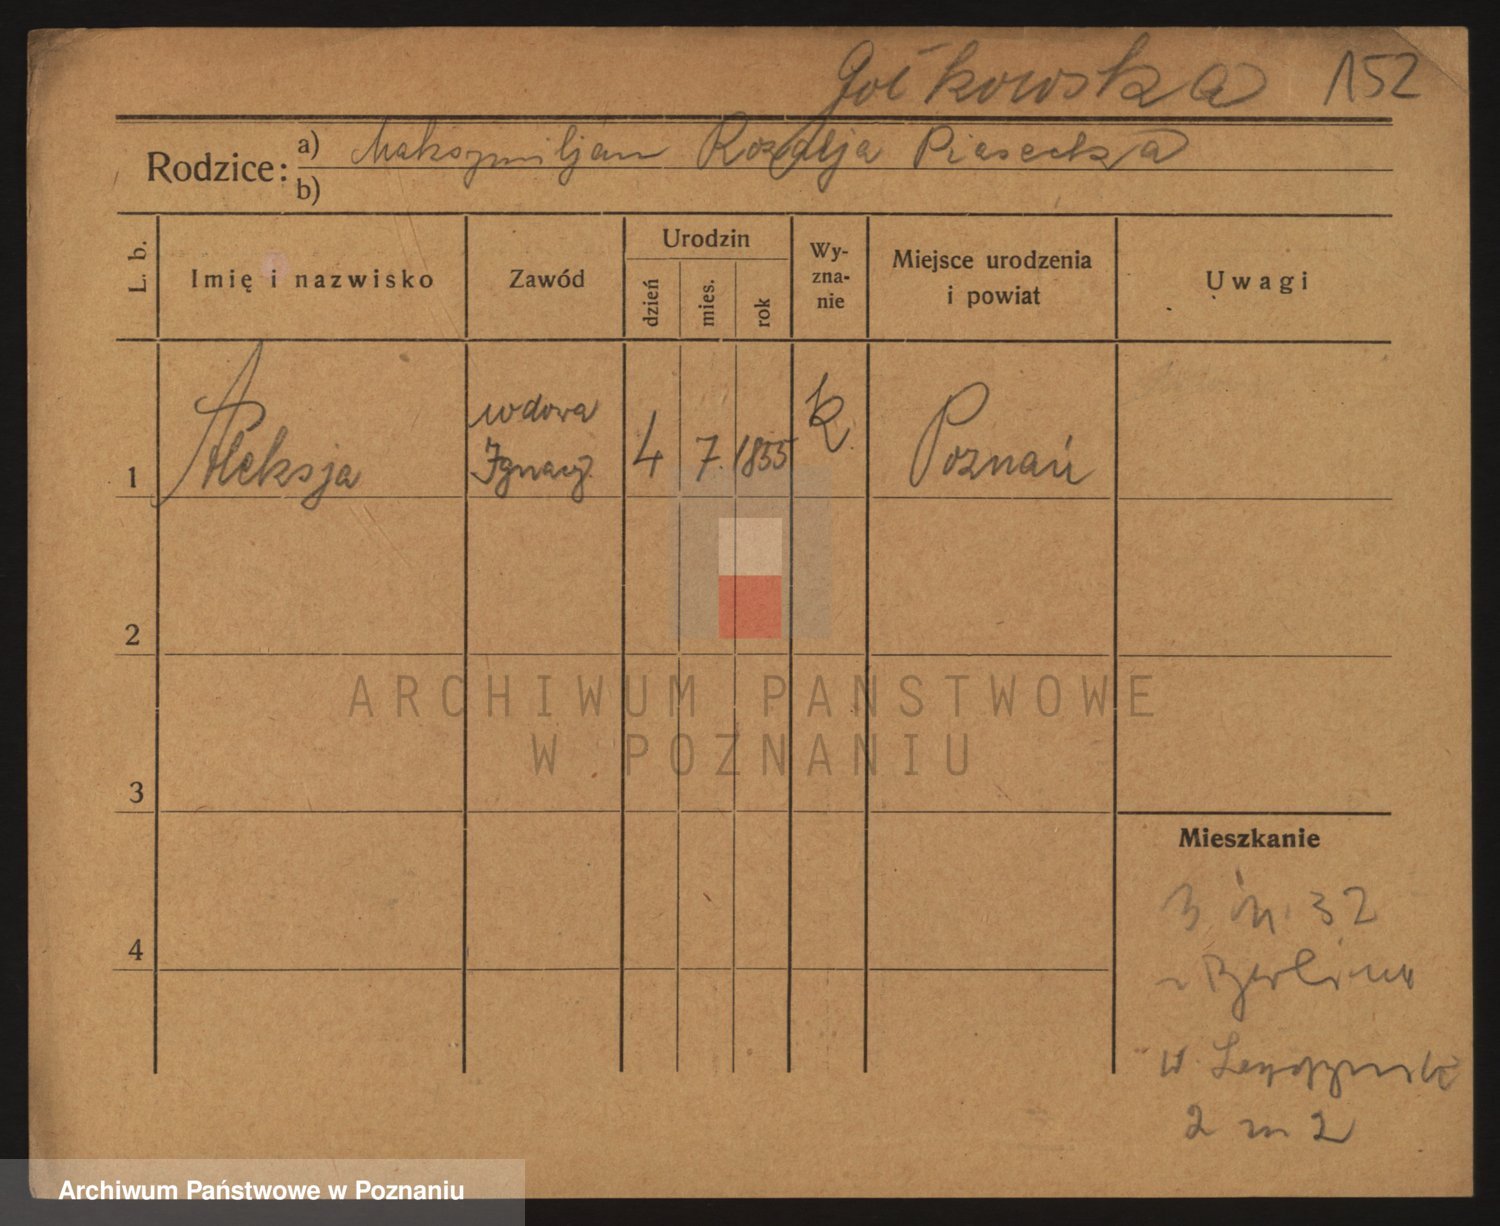 Gołkowska 152
Rodzice: a) Maksymiljan Rozalja Piasecka
b)
L. b. Imię i nazwisko Zawód Urodzin dzień mies. rok Wy-zna-nie Miejsce urodzenia i powiat Uwagi
1 Aleksja wdowa Ignacy 4 7. 1855 k. Poznań
2
3
Mieszkanie
4
3 32
z Berlina
w.
2 m 2
ARCHIWUM PAŃSTWOWE
W POZNANIU
Archiwum Państwowe w Poznaniu